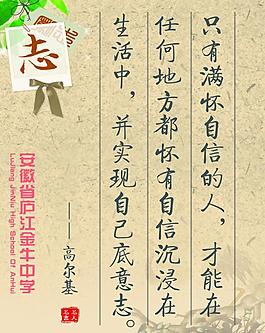 只有满怀自信的人，才能在
任何地方都怀有自信沉浸在
生活中，并实现自己底意志。
——高尔基
志
安徽省庐江金牛中学
LuJiang JinNiu High School Of AnHui
名人
名言